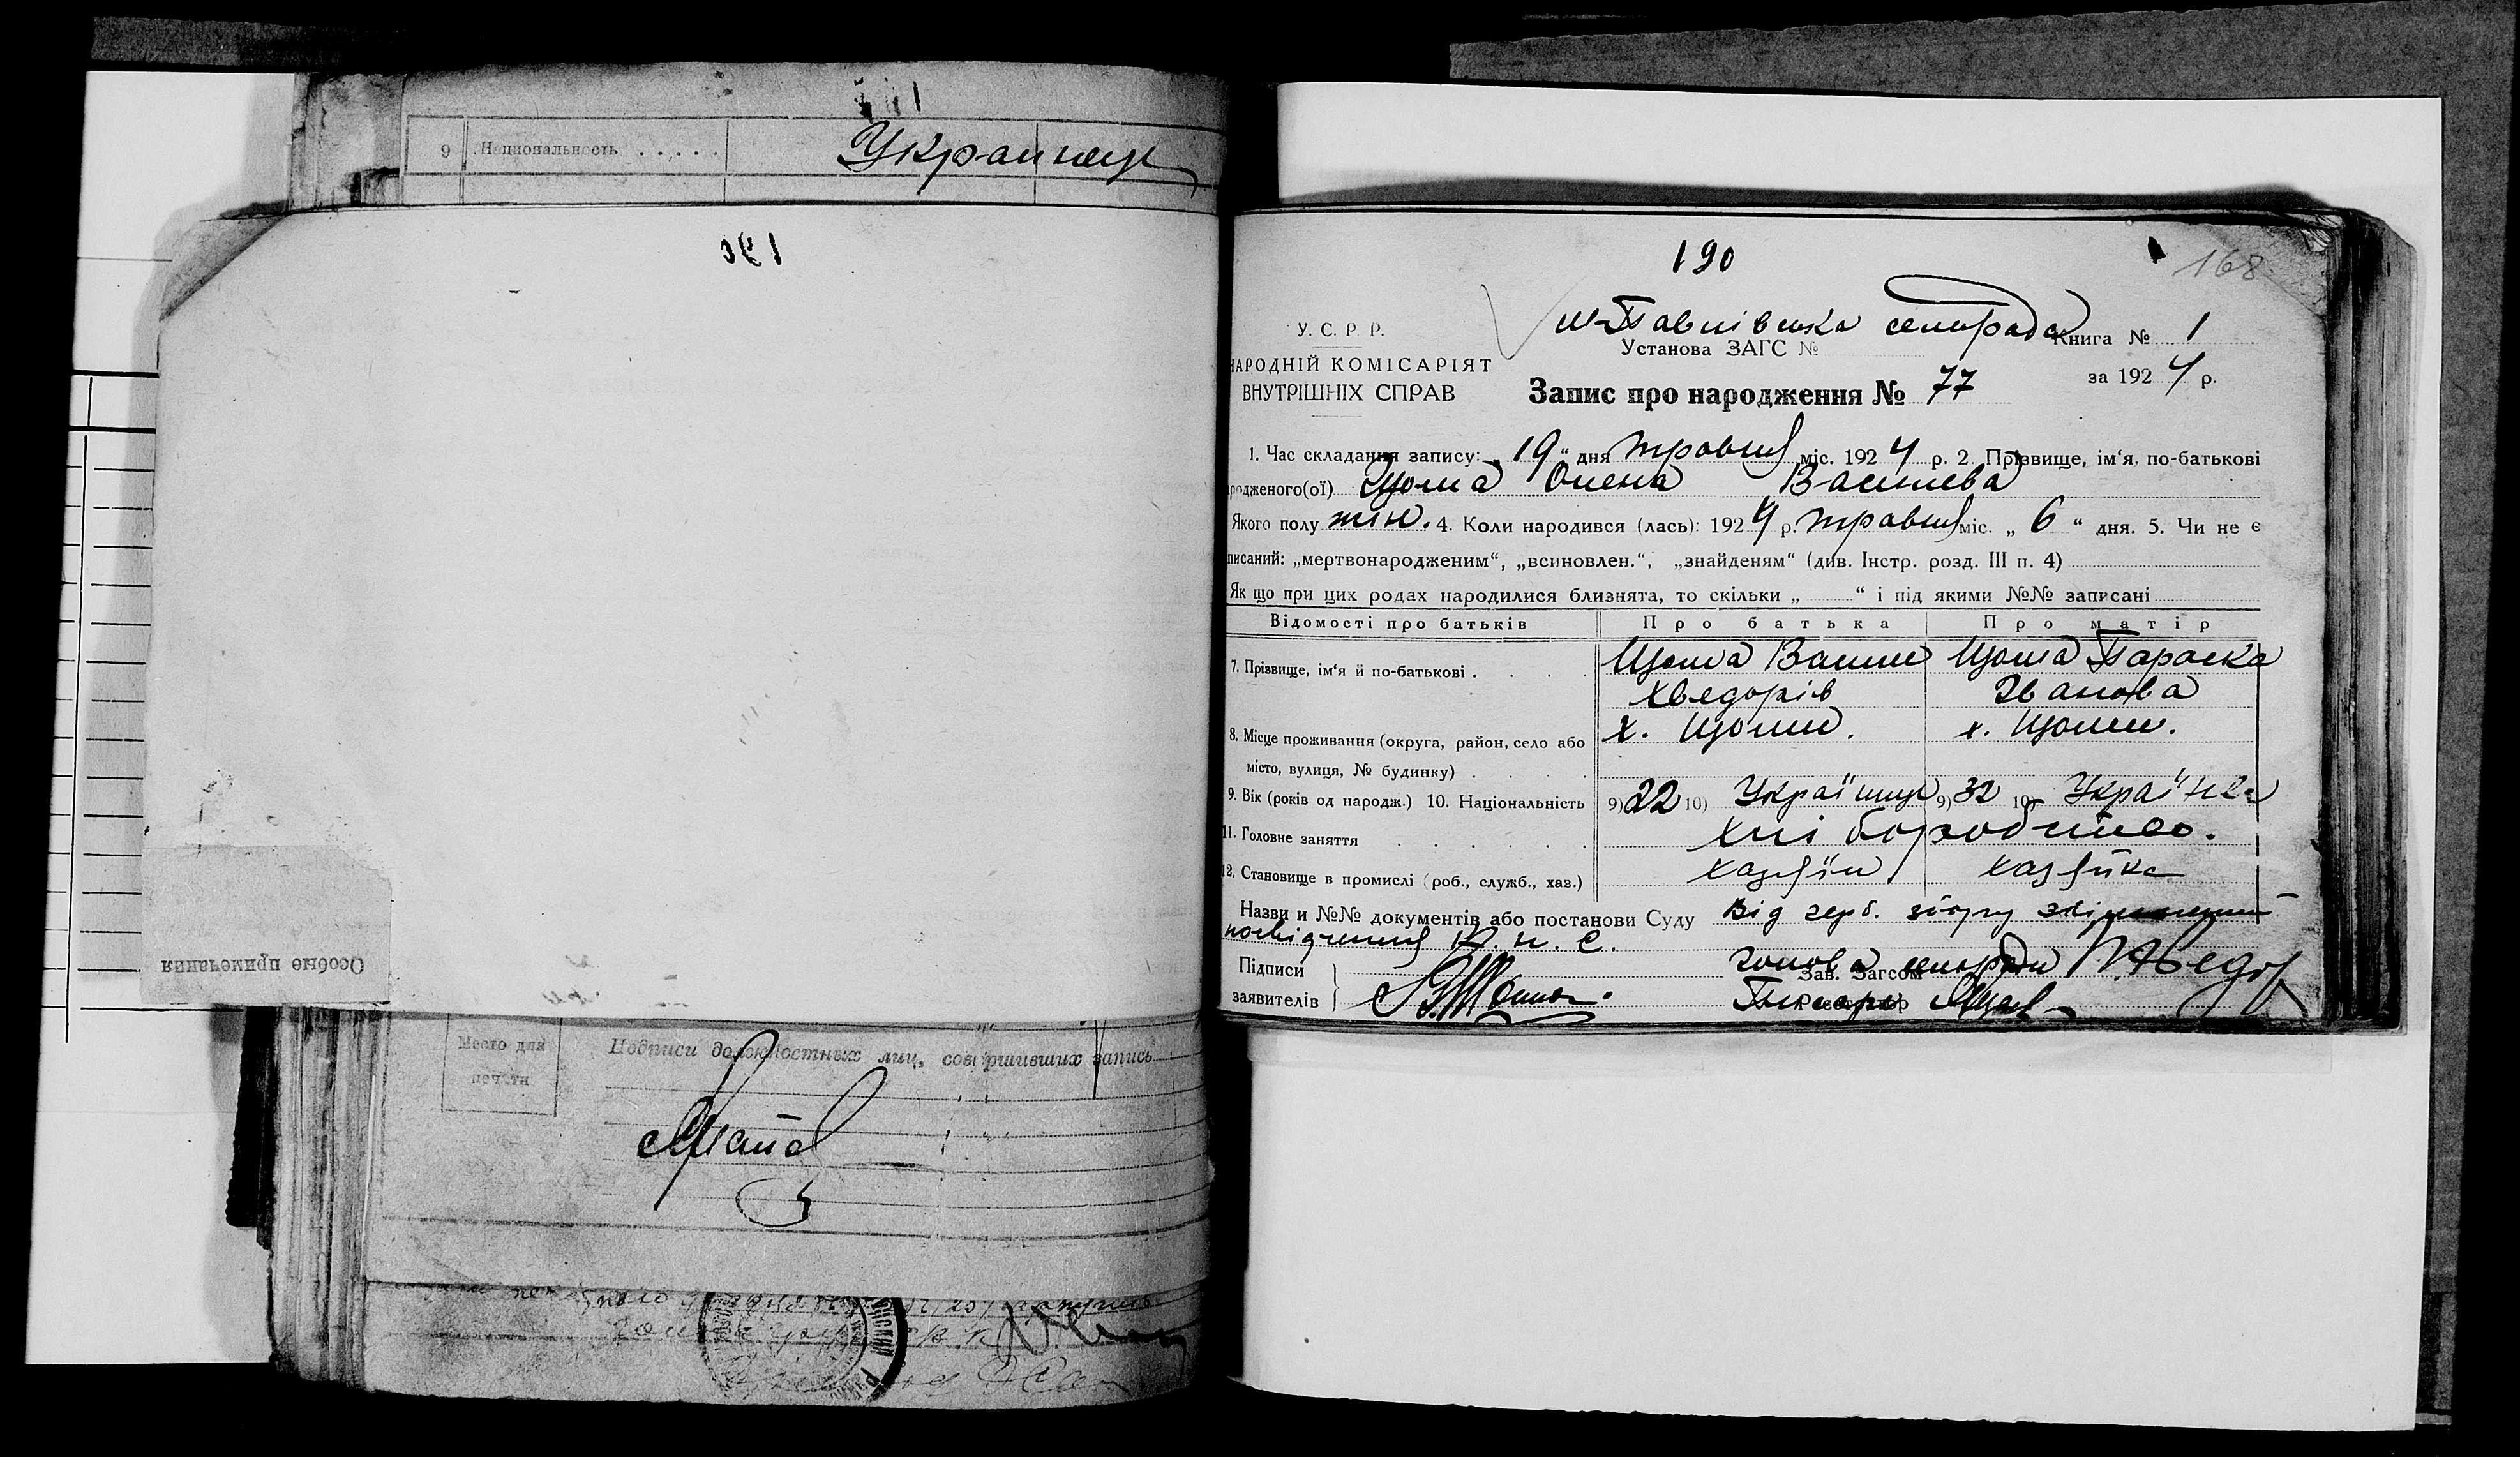 9 Национальность . . . . . Украинец
Особые примечания
Место для печати
Подписи должностных лиц, совершивших запись
190
168
У. С. Р. Р.
НАРОДНІЙ КОМІСАРІЯТ
ВНУТРІШНІХ СПРАВ
Павлівська сельрада
Установа ЗАГС №
Книга № 1
за 1924 р.
Запис про народження № 77
1. Час складання запису: „19“ дня травня міс. 1924 р. 2. Прізвище, ім‘я, по-батькові
родженого(ої) Цьома Олена Василева
Якого полу жін. 4. Коли народився (лась): 1924 р. травня міс. „6“ дня. 5. Чи не є
писаний: „мертвонародженим“, „всиновлен.“, „знайденям“ (див. Інстр. розд. III п. 4)
Як що при цих родах народилися близнята, то скільки „ “ і під якими №№ записані
Відомості про батьків Про батька Про матір
7. Прізвище, ім‘я й по-батькові . Цьома Василь Цьома Параска
Хведорів Іванова
8. Місце проживання (округа, район, село або х. Цьоми. х. Цьоми.
місто, вулиця, № будинку) .
9. Вік (років од народж.) 10. Національність 9) 22 10) Українець 9) 32 10) Українка
11. Головне заняття хліборобство.
12. Становище в промислі (роб., служб., хаз.) хазяїн хазяйка
Назви и №№ документів або постанови Суду Від герб. збору звільнений
посвідчення К. н. С.
Підписи заявителів
Зав. Загсом Голова сельради
Писарь